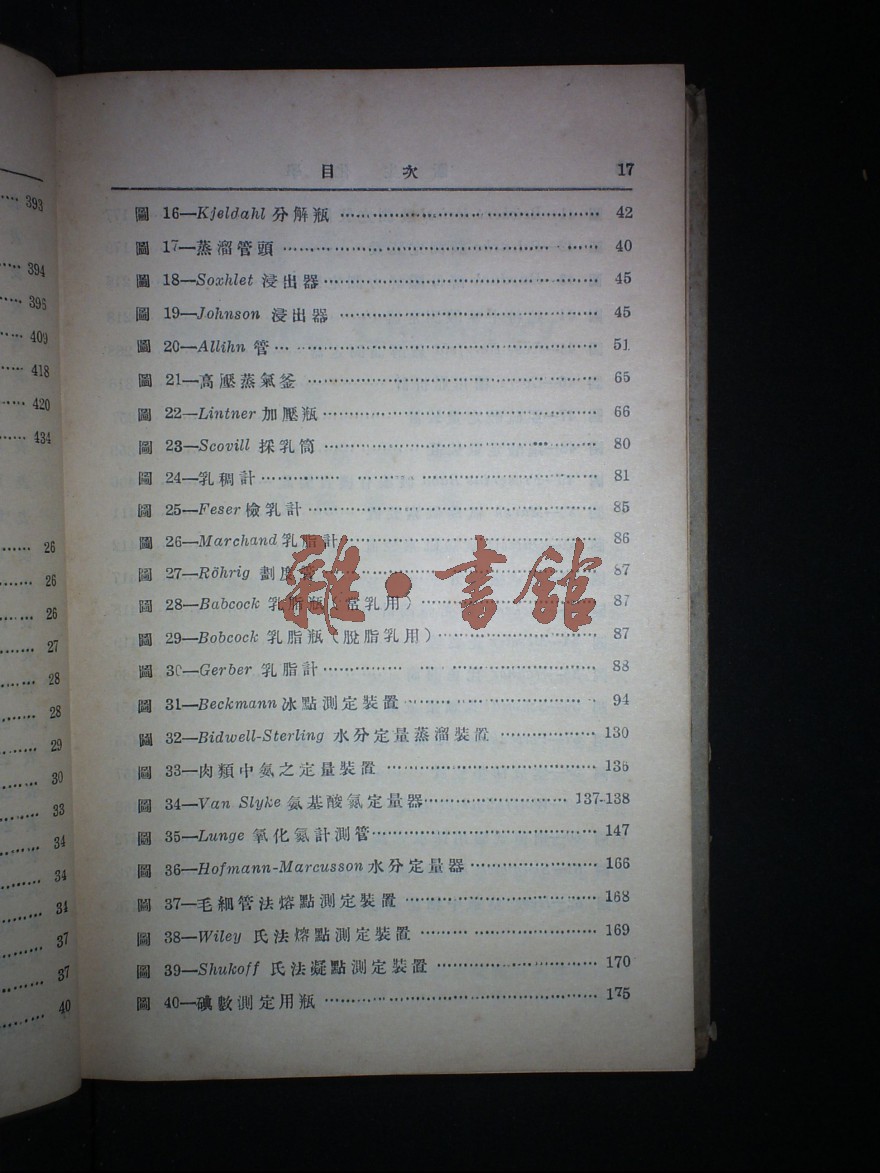 393
394
395
409
418
420
434
26
26
26
27
28
28
29
30
33
34
34
34
37
37
40
目 次 17
圖 16—Kjeldahl 分解瓶 …… 42
圖 17—蒸溜管頭 …… 40
圖 18—Soxhlet 浸出器 …… 45
圖 19—Johnson 浸出器 …… 45
圖 20—Allihn 管 …… 51
圖 21—高壓蒸氣釜 …… 65
圖 22—Lintner 加壓瓶 …… 66
圖 23—Scovill 採乳筒 …… 80
圖 24—乳稠計 …… 81
圖 25—Feser 檢乳計 …… 85
圖 26—Marchand 乳脂計 …… 86
圖 27—Röhrig 劃度管 …… 87
圖 28—Babcock 乳脂瓶（常乳用） …… 87
圖 29—Bobcock 乳脂瓶（脫脂乳用） …… 87
圖 30—Gerber 乳脂計 …… 88
圖 31—Beckmann 冰點測定裝置 …… 94
圖 32—Bidwell-Sterling 水分定量蒸溜裝置 …… 130
圖 33—肉類中氨之定量裝置 …… 136
圖 34—Van Slyke 氨基酸氮定量器 …… 137-138
圖 35—Lunge 氧化氮計測管 …… 147
圖 36—Hofmann-Marcusson 水分定量器 …… 166
圖 37—毛細管法熔點測定裝置 …… 168
圖 38—Wiley 氏法熔點測定裝置 …… 169
圖 39—Shukoff 氏法凝點測定裝置 …… 170
圖 40—碘數測定用瓶 …… 175
雜·書館